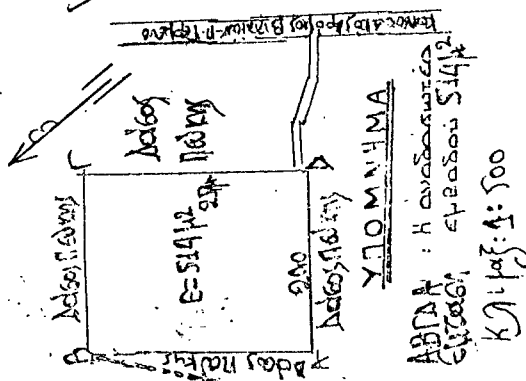 Β
Γ
Δάσος
Πεύκης
Δάσος Πεύκης
Ε=519 μ²
Δ
Δάσος Πεύκης
Δάσος Πεύκης
Α
ΥΠΟΜΝΗΜΑ
ΑΒΓΔΑ : Η αναδασωτέα
έκταση εμβαδού 519 μ²
Κλίμαξ: 1: 500